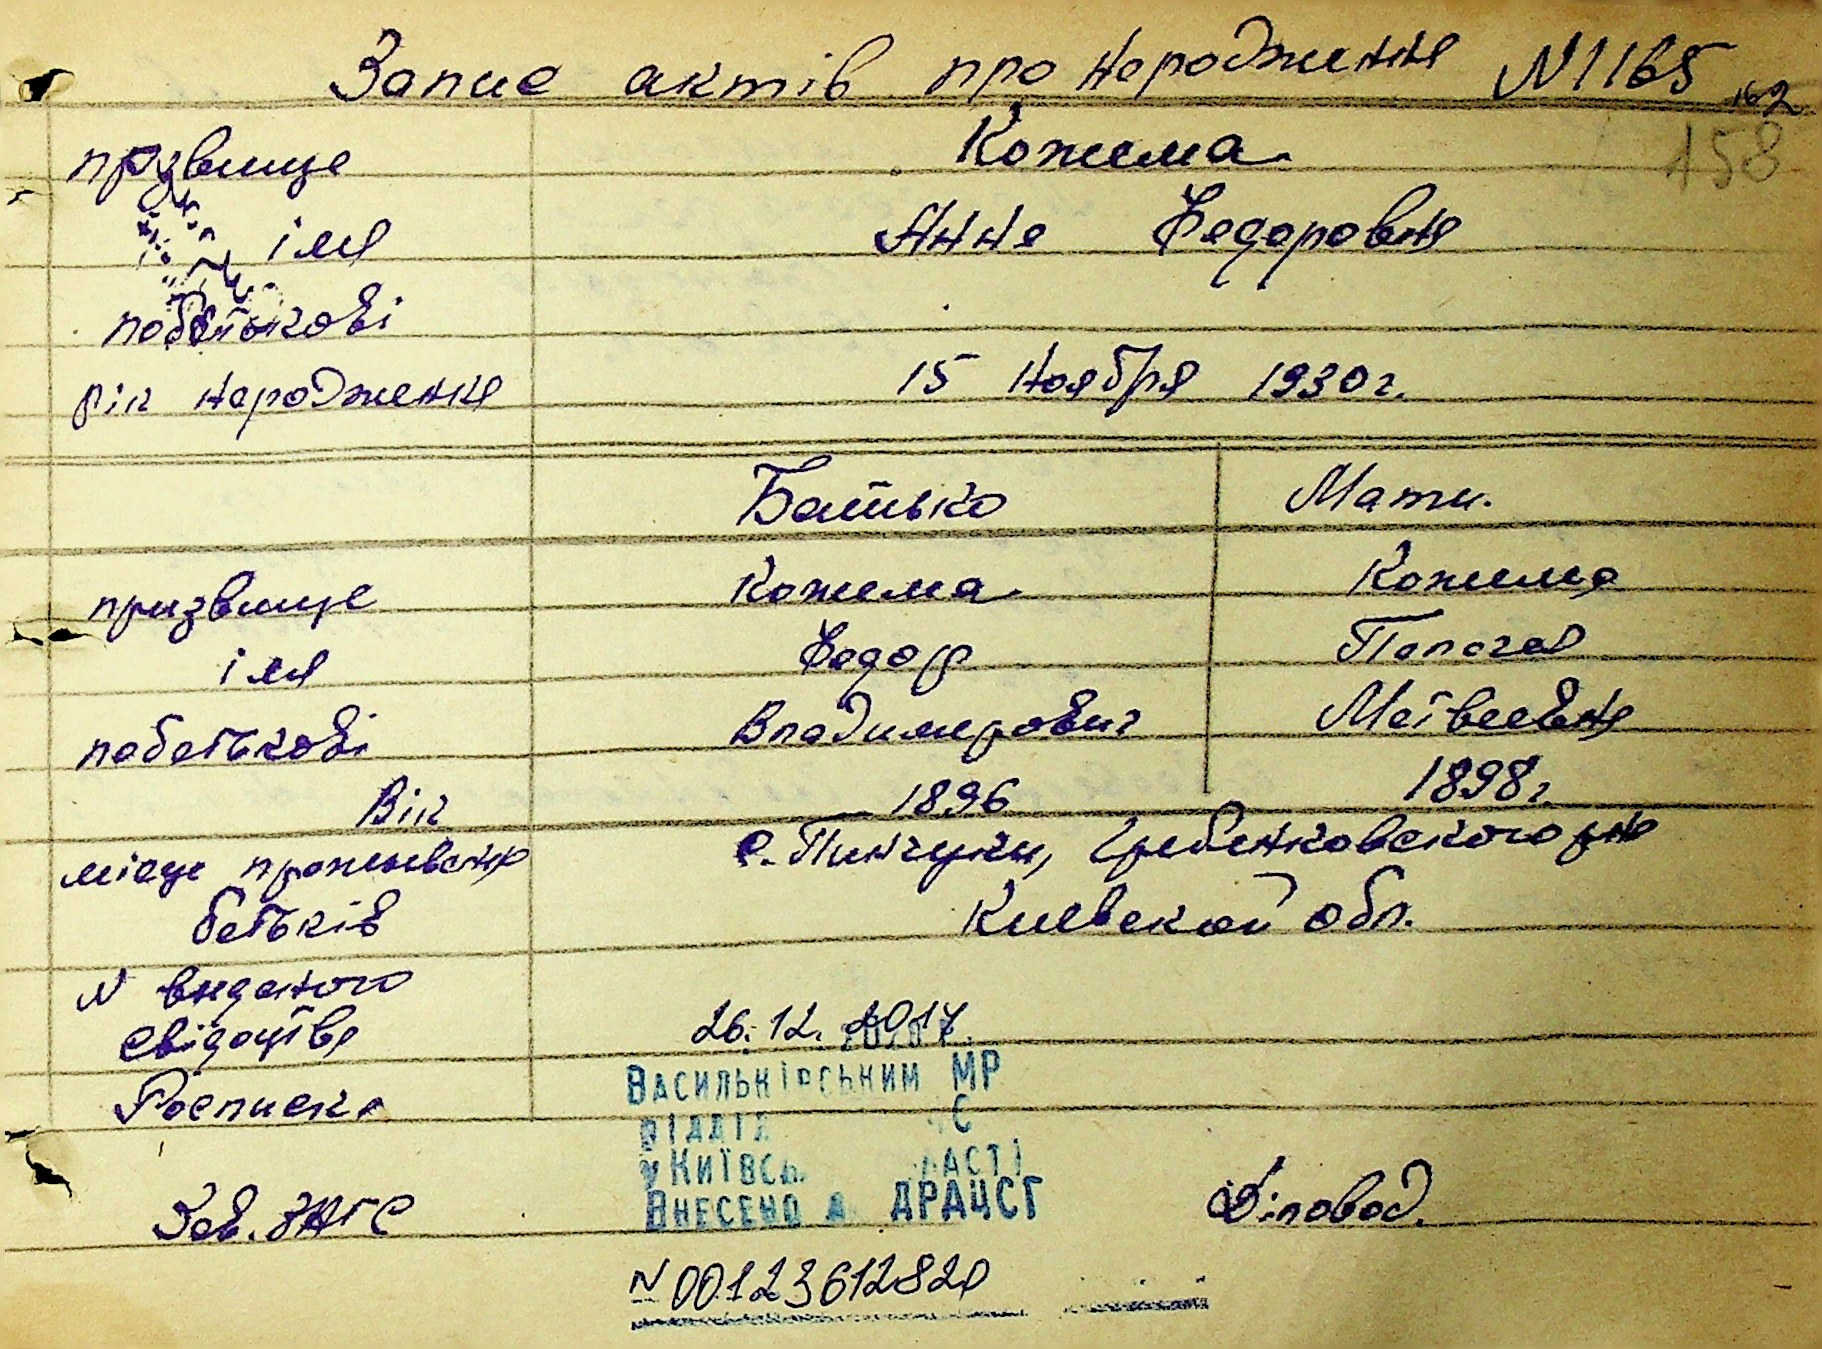 Запис актів про народження N1165
162
158
призвище Кожема
імя Анна Федоровна
побатькові
рік народження 15 Ноября 1930г.
Батько Мати.
призвище Кожема Кожема
імя Федор Палагея
побатькові Владимирович Матвеевна
Вік 1896 1898г.
місце проживання с. Пинчуки, Гребенковского рна
батьків Киевской обл.
N виданого
свідоцтва 26.12.2017
Росписка ВАСИЛЬКІВСЬКИМ МР
ВІДДІЛ С
У КИЇВСЬ АСТІ
ВНЕСЕНО ДРАЦСГ
Зав. ЗАГС Діловод.
N 00123612820